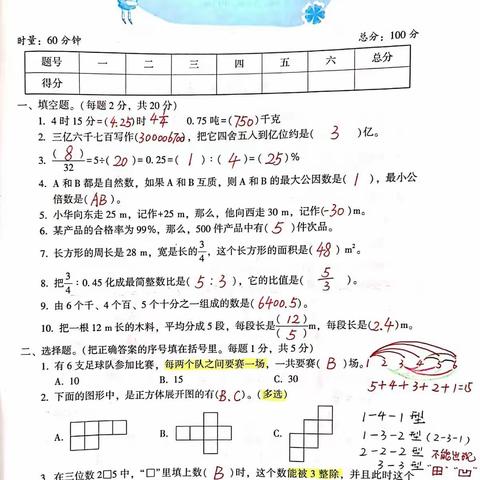 时量：60 分钟 总分：100 分
题号 一 二 三 四 五 六 总分
得分
一、填空题。（每题 2 分，共 20 分）
1. 4 时 15 分=(4.25)时 0.75 吨=(750)千克
2. 三亿六千七百写作(300006700)，把它四舍五入到亿位约是( 3 )亿。
3. (8)/32=5÷(20)=0.25=( 1 )：( 4 )=(25)%
4. A 和 B 都是自然数，如果 A 和 B 互质，则 A 和 B 的最大公因数是( 1 )，最小公
倍数是(AB)。
5. 小华向东走 25 m，记作+25 m，那么，他向西走 30 m，记作(-30)m。
6. 某产品的合格率为 99%，那么，500 件产品中有( 5 )件次品。
7. 长方形的周长是 28 m，宽是长的3/4，这个长方形的面积是(48) m²。
8. 把3/4：0.45 化成最简整数比是( 5：3 )，它的比值是( 5/3 )。
9. 由 6 个千、4 个百、5 个十分之一组成的数是(6400.5)。
10. 把一根 12 m 长的木料，平均分成 5 段，每段长是(12)/(5)m，每段长是(2.4)m。
二、选择题。（把正确答案的序号填在括号里。每题 1 分，共 5 分）
1. 有 6 支足球队参加比赛，每两个队之间要赛一场，一共要赛( B )场。 1 2 3 4 5 6
A. 10 B. 15 C. 30 5+4+3+2+1=15
2. 下面的图形中，是正方体展开图的有(B.C)。（多选）
1-4-1 型
A. B. C. 1-3-2 型 (2-3-1)
2-2-2 型 不能出现
3-3 型 "田" "凹"
3. 在三位数 2□5 中，“□”里填上数( B )时，这个数能被 3 整除，并且此时这个